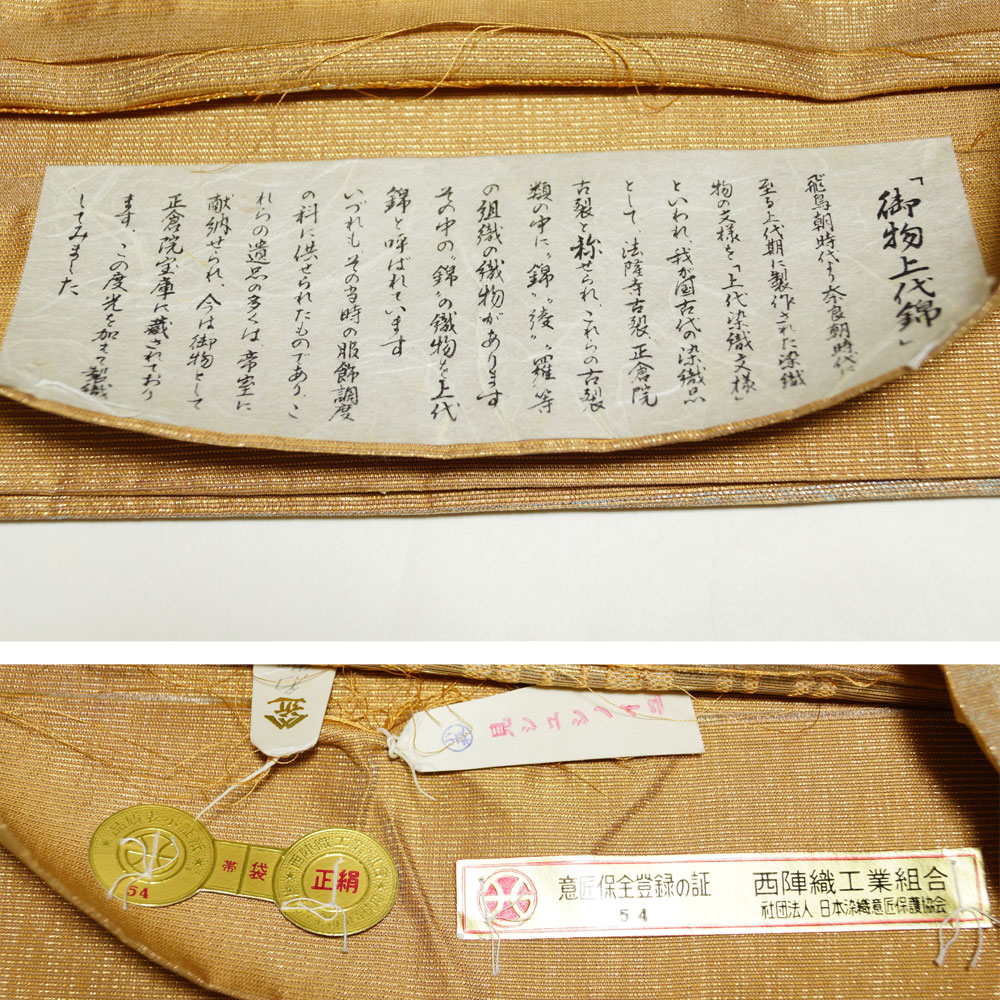 「御物上代錦」
飛鳥朝時代より奈良朝時代に
至る上代期に製作された染織
物の文様を「上代染織文様」
といわれ、我が国古代の染織品
として、法隆寺古裂、正倉院
古裂と称せられ、これらの古裂
類の中に〝錦〟〝綾〟〝羅〟等
の組織の織物があります
その中の〝錦〟の織物を上代
錦と呼ばれています
いづれもその当時の服飾調度
の料に供せられたものであり、こ
れらの遺品の多くは帝室に
献納せられ、今は御物として
正倉院宝庫に蔵されており
ます、この度光を加えて製織
してみました
見シユシノイ号
54
帯 袋
西陣織工業組合
正絹
意匠保全登録の証
54
西陣織工業組合
社団法人 日本染織意匠保護協会